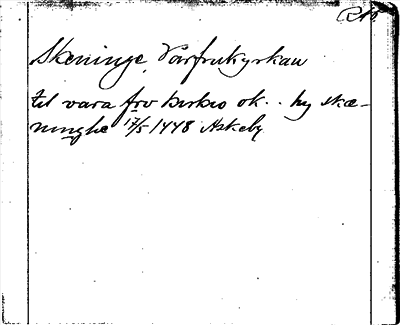 Skeninge, Vårfrukyrkan
til vara frv kirkio ok . . hy skæ-
ninghe 17/5 1448 Askeby